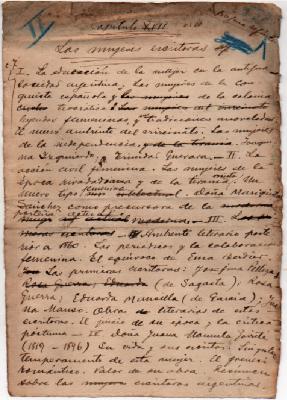 II
Capítulo XIII
Las mujeres escritoras
I. La educación de la mujer en la antigua
sociedad argentina. Las mujeres de la con
quista española y las mujeres de la colonia
leyendas femeninas, y tradiciones
El nuevo ambiente del Las mujeres
de la independencia y de la tiranía.
Izquierdo. Trinidad Guevara. — II. La
acción civil femenina. Las mujeres de la
época rivadaviana y de la tiranía. Un
nuevo tipo femenino intelectual. Doña Mariquita
Sánchez como precursora de la
III.
Ambiente literario poste
rior a 1860. Los periódicos y la colaboración
femenina. El equívoco de Ema Berdier.
Las primeras escritoras: Josefina Pelliza
(de Sagasta); Rosa
Guerra; Eduarda Mansilla (de García); Jua
na Manso. Obra literaria de estas
escritoras. El juicio de su época y la crítica
póstuma. — II. Doña Juana Manuela Gorriti
(1819-1896) Su vida y sus escritos. Singular
temperamento de esta mujer. El
romántico. Valor de su obra. Resumen
sobre las mujeres escritoras argentinas.